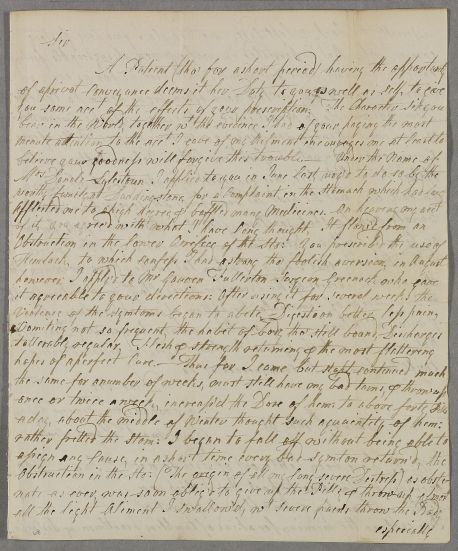 Sir
A Patient tho' for a short period having the opportunity
of a privat Conveyance deems it her Duty to you as well as self to give
you some acct of the effects of your prescription. The Character Sir you
bear in the World, together wt the evidence I had of your paying the most
minute attention to the acct I gave of my Ailment incourages me at least to
believe your goodness will forgive this trouble. Under the Name of
Mrs I applied to you in June last
worthy for a Complaint in the Stomach which had long
Afflicted me to a high degree & baffled many Medicines. On hearing my acct
of it you agreed with what I have long thought. It flowed from an
Obstruction in the Lower Orefice of the Sto: You prescribed the use of
Hemlock, to which I confess I had a strong tho foolish aversion, in August
however I applyd to Mr Gavven Fullerton Surgeon Greenock who gave
it agreeable to your directions. After using it for several weeks the
Violence of the symtoms began to abate, Digestion better,
Vomiting not so frequent, the habit of body tho still bound, Discharges
tollerably regular, Flesh & strength returning & the most flattering
hopes of a perfect Cure. Thus far I came but stopt continued much
the same for a number of weeks, must still have my bad turns & throw up
once or twice a week, increas'd the Dose of Hem: to above forty Pills
a day, about the middle of Winter thought such a quantity of Hem:
rather fretted the Stom: I began to fall off without being able to
assign any Cause, in a short time every bad symtom return'd, the
Obstruction in the Sto: (The origin of all my long severe Distress) as obsti-
nate as ever, was soon oblig'd to give up the Pills, & throw up almost
all the light Aliment I swallow'd, wt severe pains throw the Body
especially